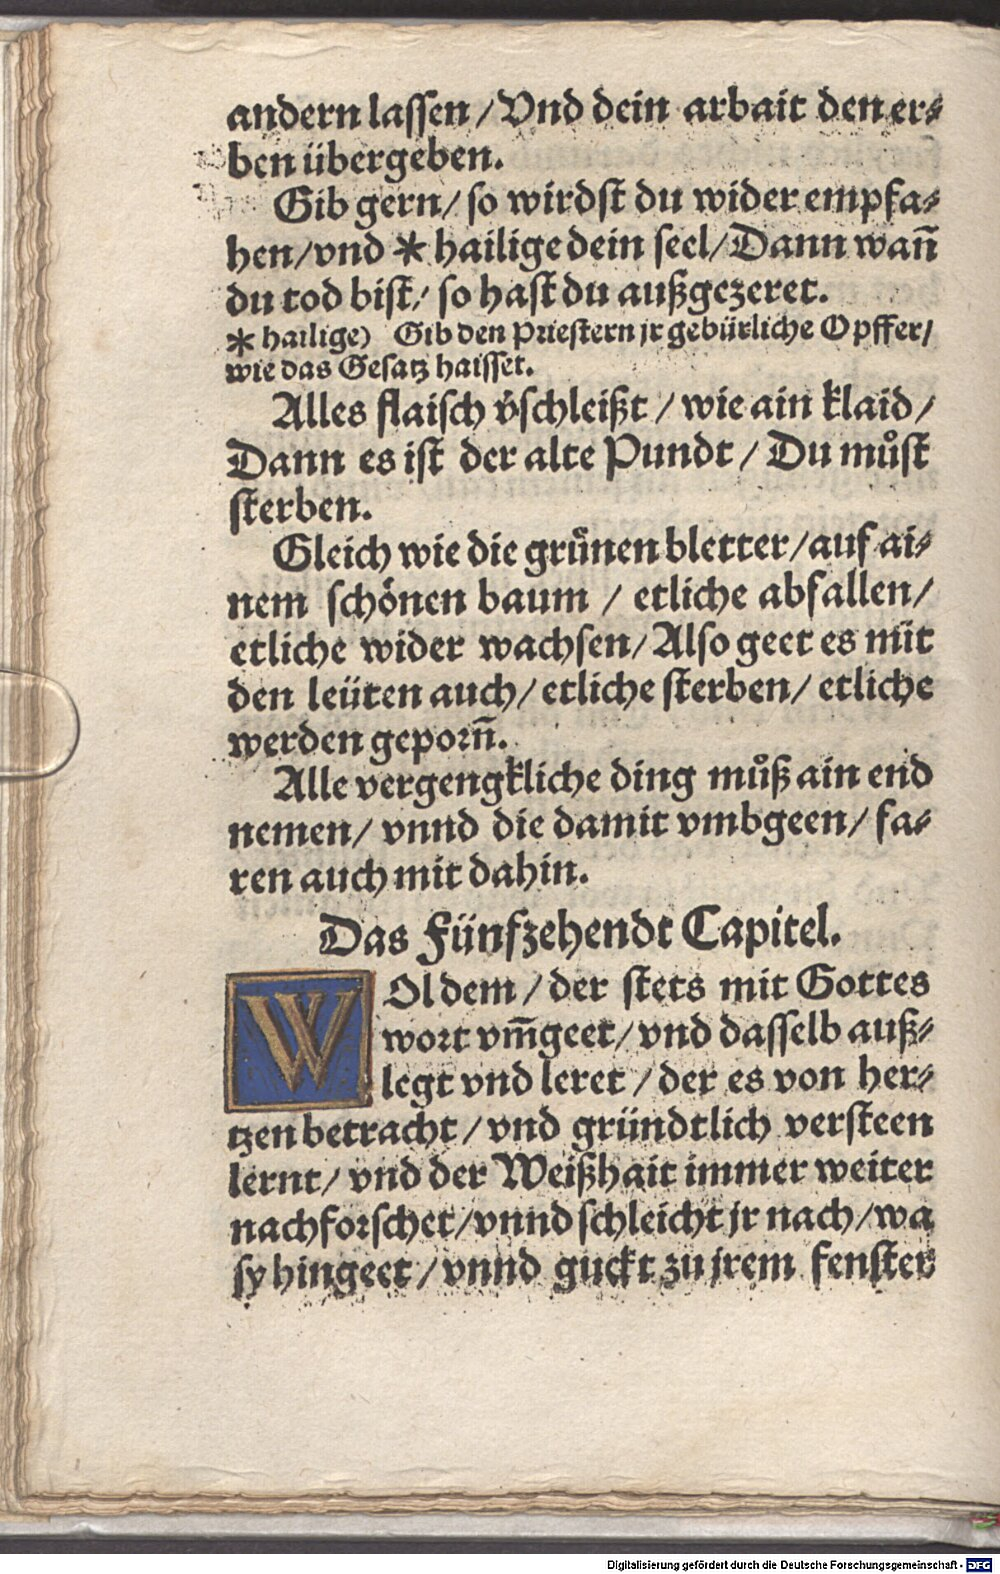 andern lassen / Vnd dein arbait den er⸗
ben übergeben.
Gib gern / so wirdst du wider empfa⸗
hen / vnd * hailige dein seel / Dann wañ
du tod bist / so hast du außgezeret.
* hailige) Gib den Priestern jr gebürliche Opffer /
wie das Gesatz haisset.
Alles flaisch v̊schleißt / wie ain klaid /
Dann es ist der alte Pundt / Du můst
sterben.
Gleich wie die grůnen bletter / auf ai⸗
nem schönen baum / etliche abfallen /
etliche wider wachsen / Also geet es mit
den leüten auch / etliche sterben / etliche
werden geporñ.
Alle vergengkliche ding můß ain end
nemen / vnnd die damit vmbgeen / fa⸗
ren auch mit dahin.
Das Fünfzehendt Capitel.
WOl dem / der stets mit Gottes
wort vm̃geet / vnd dasselb auß⸗
legt vnd leret / der es von her⸗
tzen betracht / vnd gründtlich versteen
lernt / vnd der Weißhait immer weiter
nachforschet / vnnd schleicht jr nach / wa
sy hingeet / vnnd guckt zu jrem fenster
Digitalisierung gefördert durch die Deutsche Forschungsgemeinschaft - DFG